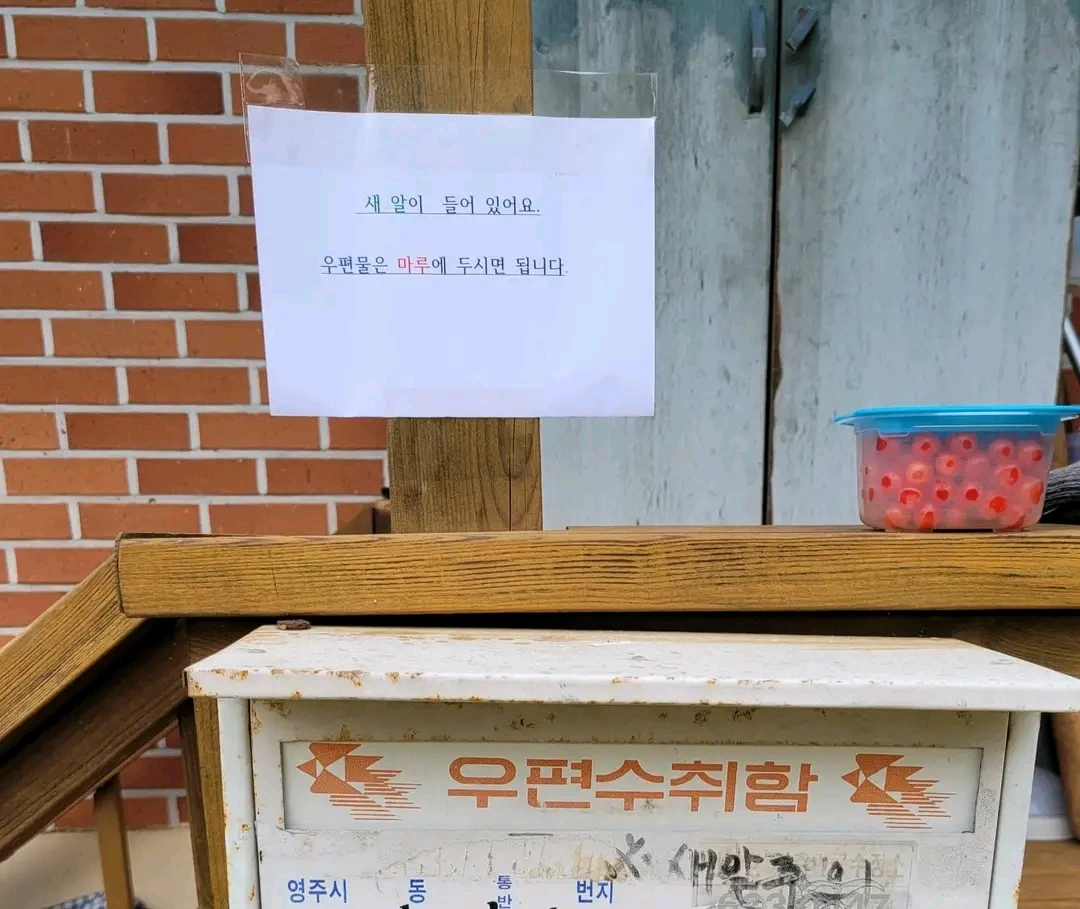 새 알이 들어 있어요.
우편물은 마루에 두시면 됩니다.
우편수취함
※ 새알주의
영주시 동 통반 번지